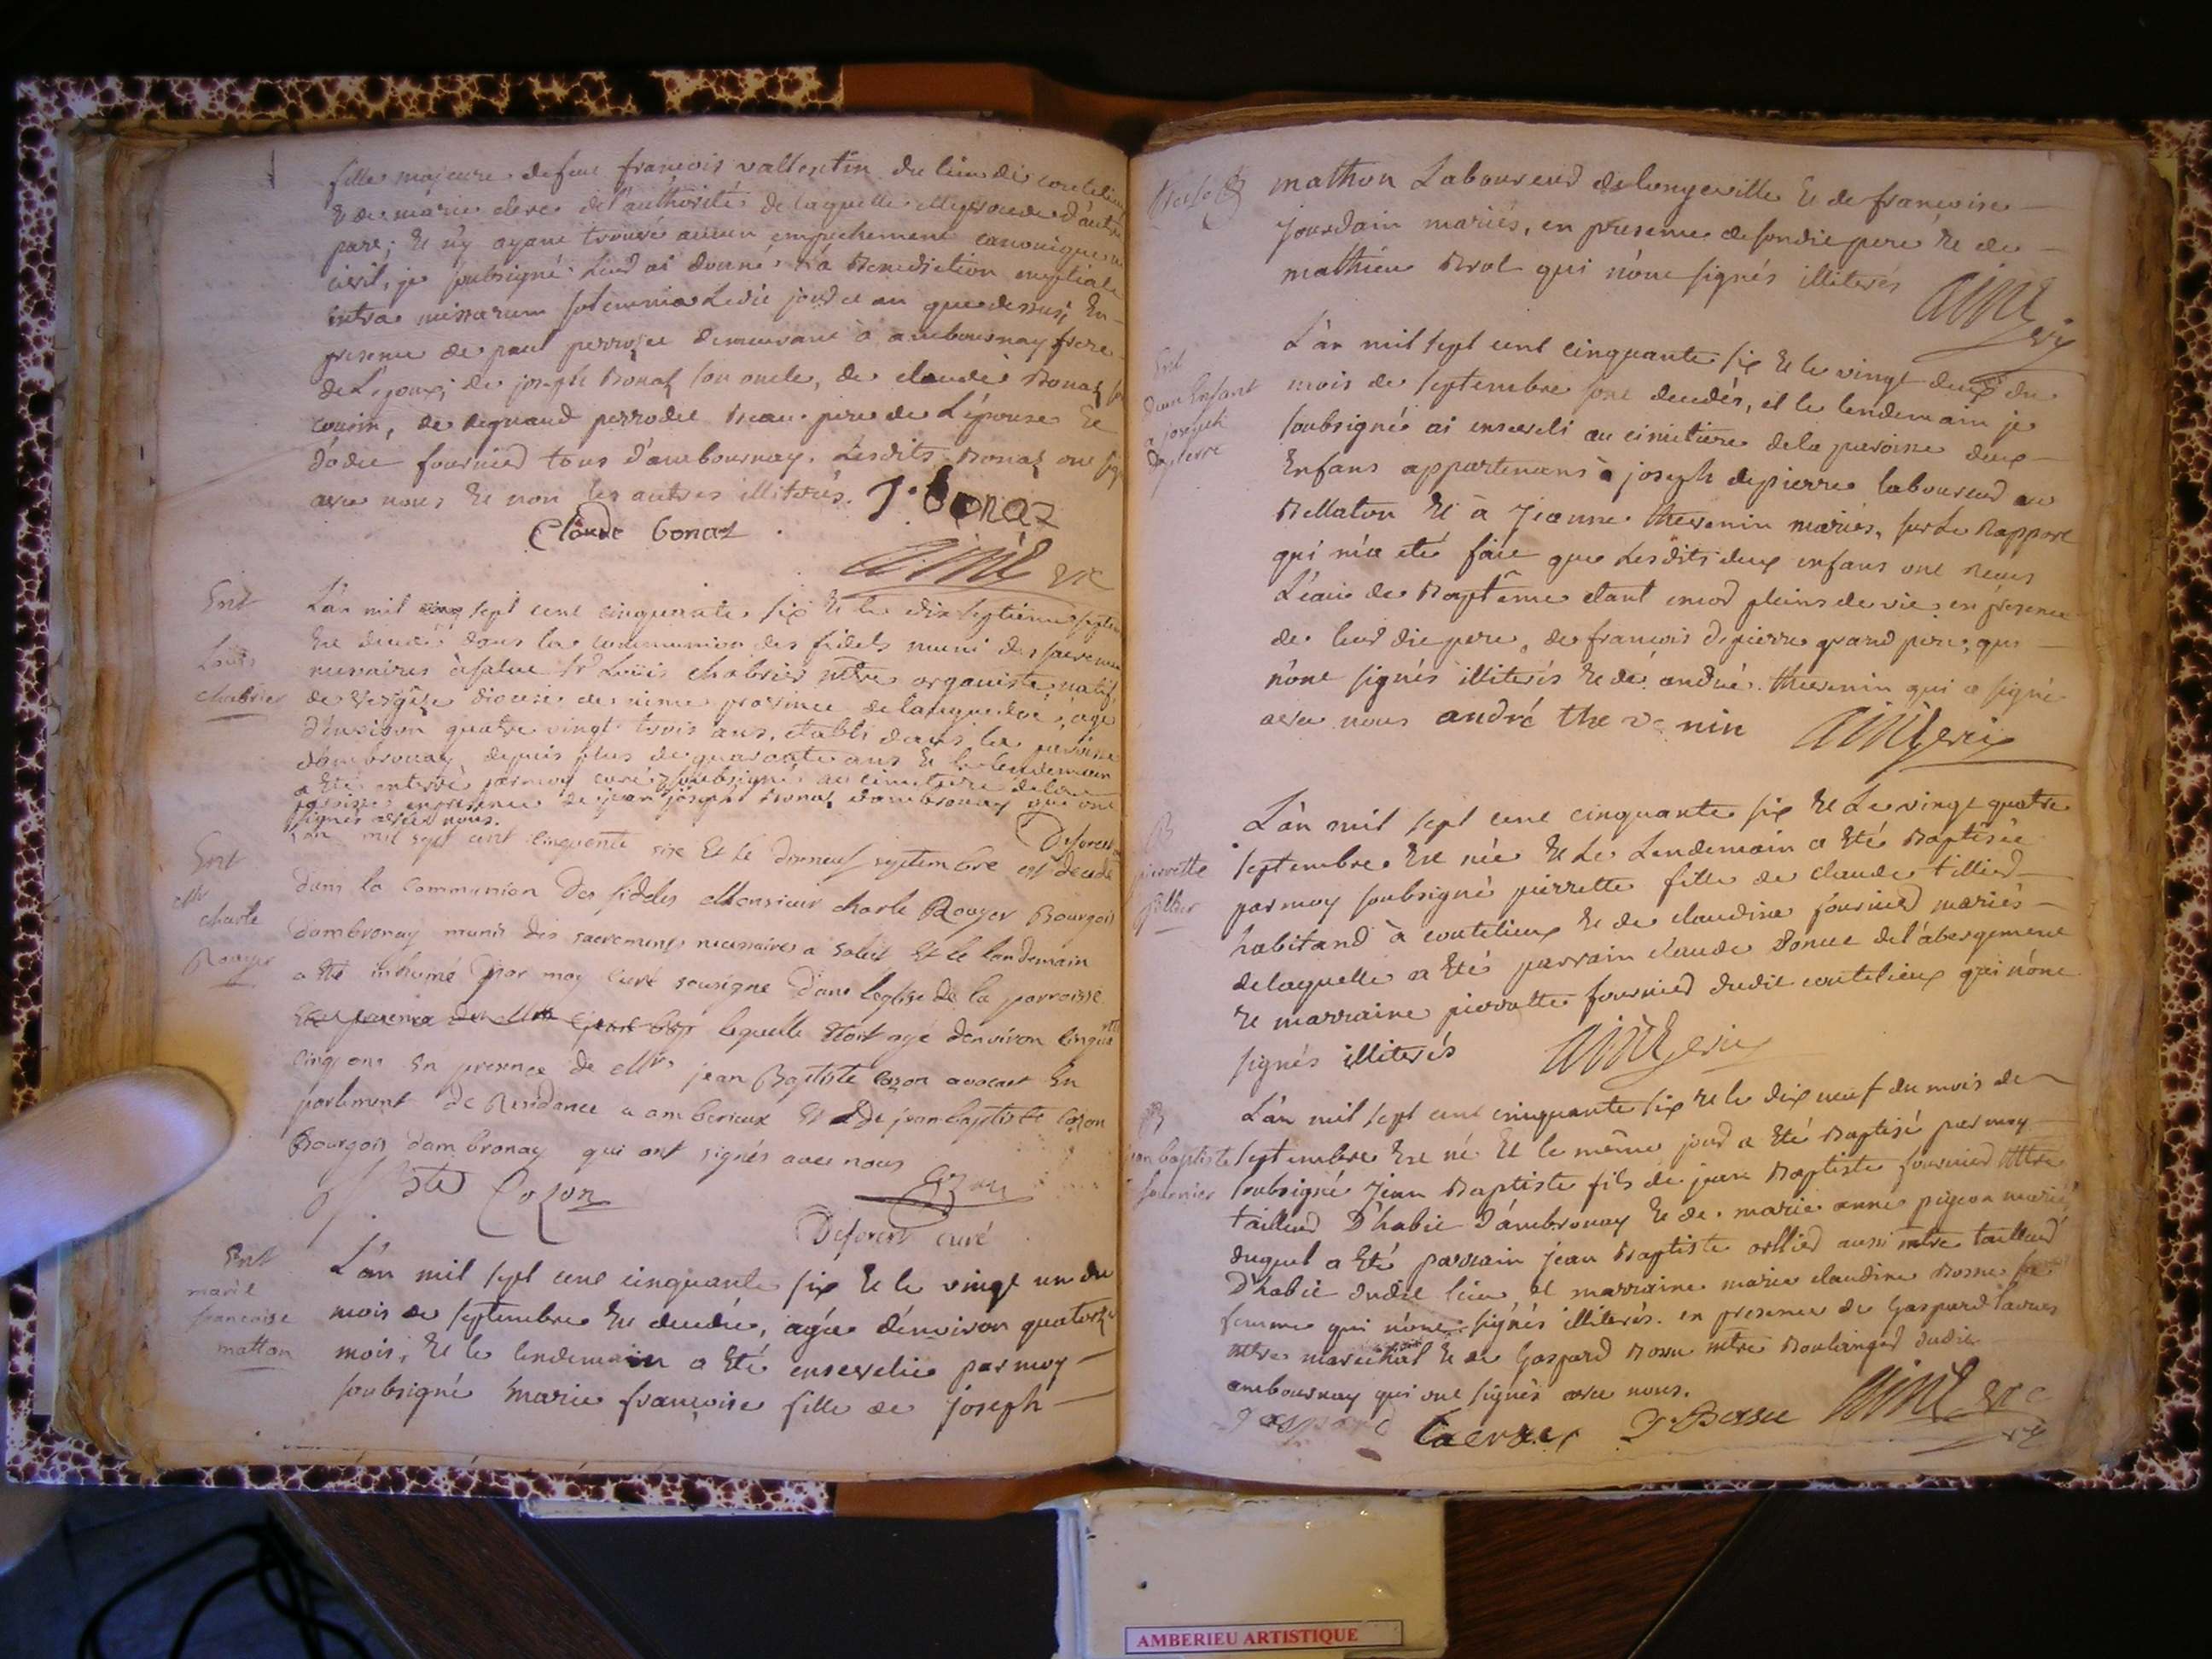 fille majeure defeu francois vallentin du lieu de
Et de marie clerc de l'authorité de laquelle elle procede d'autre
part; Et n'y ayant trouvé aucun empechement canonique ni
civil, je soubsigné leur ai donné la Benediction nuptiale
intra missarum solemnia Ledit jour et an que dessus; En
presence de paul perrozet demeurant à ambournay frere
de L'epoux; de joseph Bonaz son oncle, de claude Bonaz son
cousin, de perrodet Beau-pere de L'épouse Et
fournier tous d'ambournay. Lesdits Bonaz ont signé
avec nous Et non les autres illiterés. J. bonaz
Claude bonaz
aimé vic
Ent
Loüis
chabrier
L'an mil sept cent cinquante six Et le dix septieme septembre
Est decedé dans la communion des fidels muni des sacremens
necessaires à salut Sr Loüis chabrier mtre organiste, natif
de diocese de nime province de languedoc, agé
d'environ quatre vingt trois ans, établi dans la paroisse
d'ambronay, depuis plus de quarante ans Et le lendemain
a Eté enterré par moy curé soubsigné au cimetiere de la
paroisse en presence de jean joseph Bonaz d'ambronay qui ont
signés avec nous.
Deforest
Ent
Mr
charle
Rouyer
L'an mil sept cent cinquante six Et le dixneuf septembre est decedé
dans la Communion des fideles Monsieur charle Rouyer Bourgois
d'ambronay munis des sacrements necessaires a salut Et le landemain
a Eté inhumé par moy curé sousigne dans leglise de la parroisse
lequelle Etant agé denviron cinquante
cinq ans En presence de Mr jean Baptiste Cozon avocat En
parlement de Residance a amberieux Et de jean baptiste cozon
Bourgois dambronay qui ont signés avec nous
Cozon
Cozon
Deforest curé
Ent
marie
francoise
matton
L'an mil sept cent cinquante six Et le vingt un du
mois de septembre Est decedée, agée d'environ quatorze
mois, Et le lendemain a Eté ensevelie par moy
soubsigné marie françoise fille de joseph
mathon Laboureur de longeville Et de francoise
jourdain mariés, en presence de sondit pere Et de
mathieu Brot qui n'ont signés illiterés
aimé vic
Ent
deux Enfant
a joseph
depierre
L'an mil sept cent cinquante six Et le vingt deux du
mois de septembre sont decedés, et le lendemain je
soubsigné ai enseveli au cimetiere de la paroisse deux
Enfans appartenans à joseph depierre laboureur au
Bellaton Et à jeanne thevenin mariés, sur Le Rapport
qui m'a eté fait que Lesdits deux enfans ont Recus
L'eau de Baptême etant encor pleins de vie en presence
de leur dit pere, de francois depierre grand pere, qui
n'ont signés illiterés Et de andré thevenin qui a signé
avec nous andré the ve nin aimé vic
B
pierrette
tillier
L'an mil sept cent cinquante six Et Le vingt quatre
septembre Est née Et Le Lendemain a Eté Baptisée
par moy soubsigné pierrette fille de claude tillier
habitand à coutelieux Et de claudine fournier mariés
de laquelle a Eté parrain claude Bonne de l'abergement
Et marraine pierrette fournier dudit coutelieux qui n'ont
signés illiterés aimé vic
B
jean baptiste
fournier
L'an mil sept cent cinquante six Et le dix neuf du mois de
septembre Est né Et le même jour a Eté Baptisé par moy
soubsigné jean Baptiste fils de jean Baptiste fournier Mtre
tailleur D'habit d'ambronay Et de marie anne pigeon mariés,
duquel a Eté parrain jean Baptiste aussi mtre tailleur
D'habit dudit lieu et marraine marie claudine Bossu sa
femme qui n'ont signés illiterés. en presence de Gaspard
mtre marechal Et de Gaspard Bossu mtre Boulanger dudit
ambournay qui ont signés avec nous.
gaspard G Bossu aimé vic
AMBERIEU ARTISTIQUE